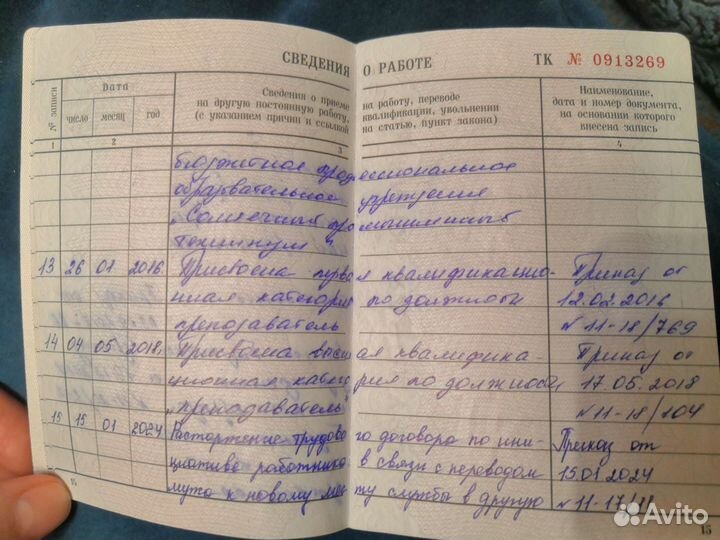 СВЕДЕНИЯ О РАБОТЕ ТК № 0913269
№ записи
Дата
число месяц год
Сведения о приеме на работу, переводе
на другую постоянную работу, квалификации, увольнении
(с указанием причин и ссылкой на статью, пункт закона)
Наименование,
дата и номер документа,
на основании которого
внесена запись
1 2 3 4
бюджетное профессиональное
образвательное учреждения
техникум"
13 26 01 2016 Присвоена первая квалификацио- Приказ от
нная категория по должности 12.02.2016
преподаватель №11-18/769
14 04 05 2018 Присвоена высшая квалифика- Приказ от
ционная категория по должности, 17.05.2018
"преподаватель" №11-18/104
15 15 01 2024 Расторжение трудового договора по ини- Приказ от
циативе работника в связи с переводом 15.01.2024
мужа к новому месту службы в другую №11-17/18
15
Avito